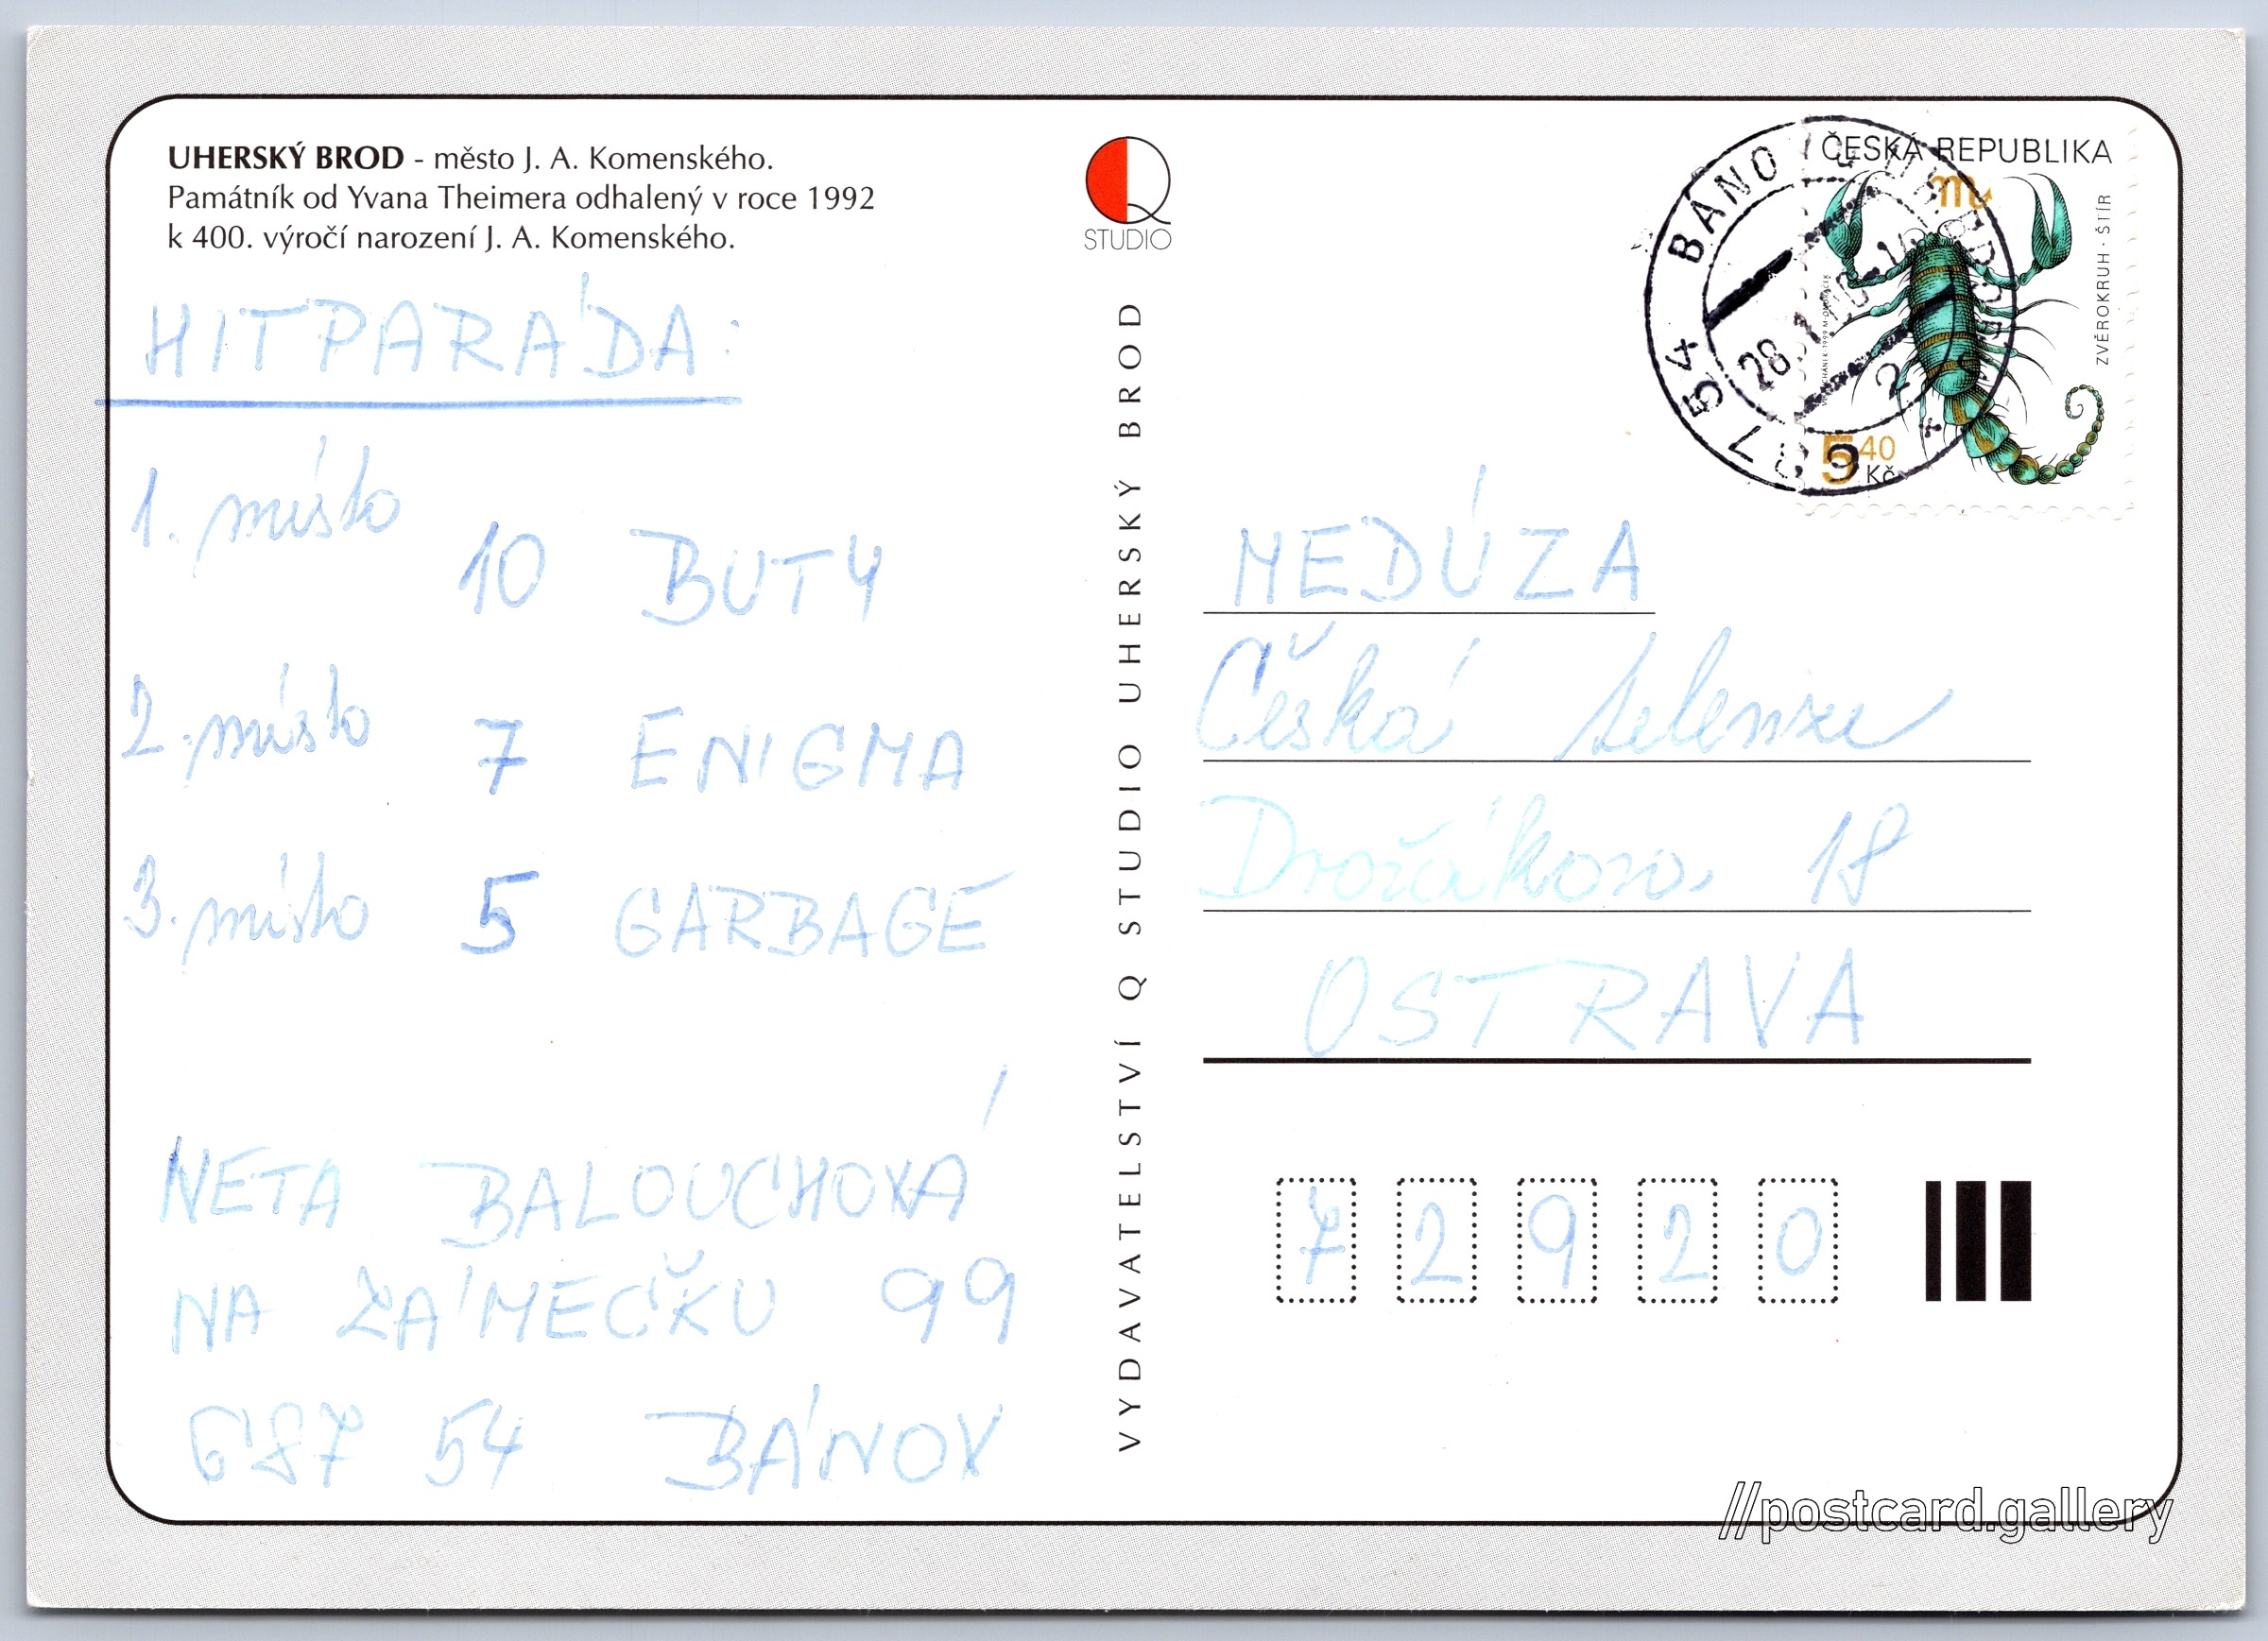 UHERSKÝ BROD - město J. A. Komenského.
Památník od Yvana Theimera odhalený v roce 1992
k 400. výročí narození J. A. Komenského.
HITPARÁDA:
1. místo
10 BUTY
2. místo 7 ENIGMA
3. místo 5 GARBAGE
NETA BALOUCHOVÁ
NA ZÁMEČKU 99
687 54 BÁNOV
Q
STUDIO
VYDAVATELSTVÍ Q STUDIO UHERSKÝ BROD
ČESKÁ REPUBLIKA
ZVĚROKRUH · ŠTÍR
5 40
Kč
687 54 BÁNOV
28.
MEDÚZA
Česká televize
Dvořákova 18
OSTRAVA
7 2 9 2 0
//postcard.gallery